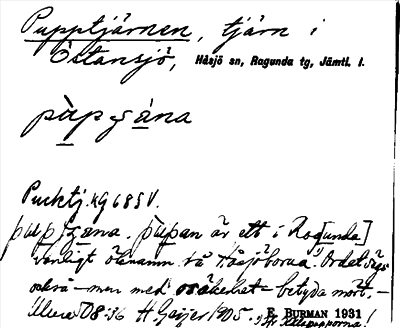 Pupptjärnen, tjärn i
Östansjö, Håsjö sn, Ragunda tg, Jämtl. l.
pùpçána
Pucktj. kg 68 SV.
är ett i Rag[unda]
vanligt öknamn på Håsjöborna". Ordet säges
också – men med osäkerhet – betyda mört. –
08:36 H Geijer 1905.
E. BURMAN 1931